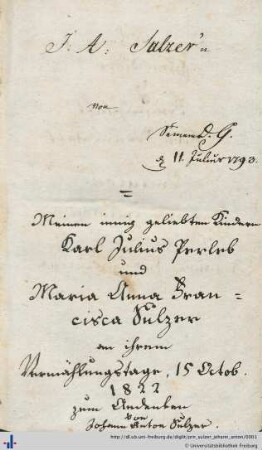 J. A. Sulzer
von
D. G.
d 11. Julius 1793.
=
Meinen innig geliebten Kindern
Karl Julius Perleb
und
Maria Anna Fran=
cisca Sulzer
an ihrem
Vermählungstage, 15 Octob.
1822
zum Andenken
von
Johann Anton Sulzer.
http://dl.ub.uni-freiburg.de/diglit/prm_sulzer_johann_anton/0001
© Universitätsbibliothek Freiburg